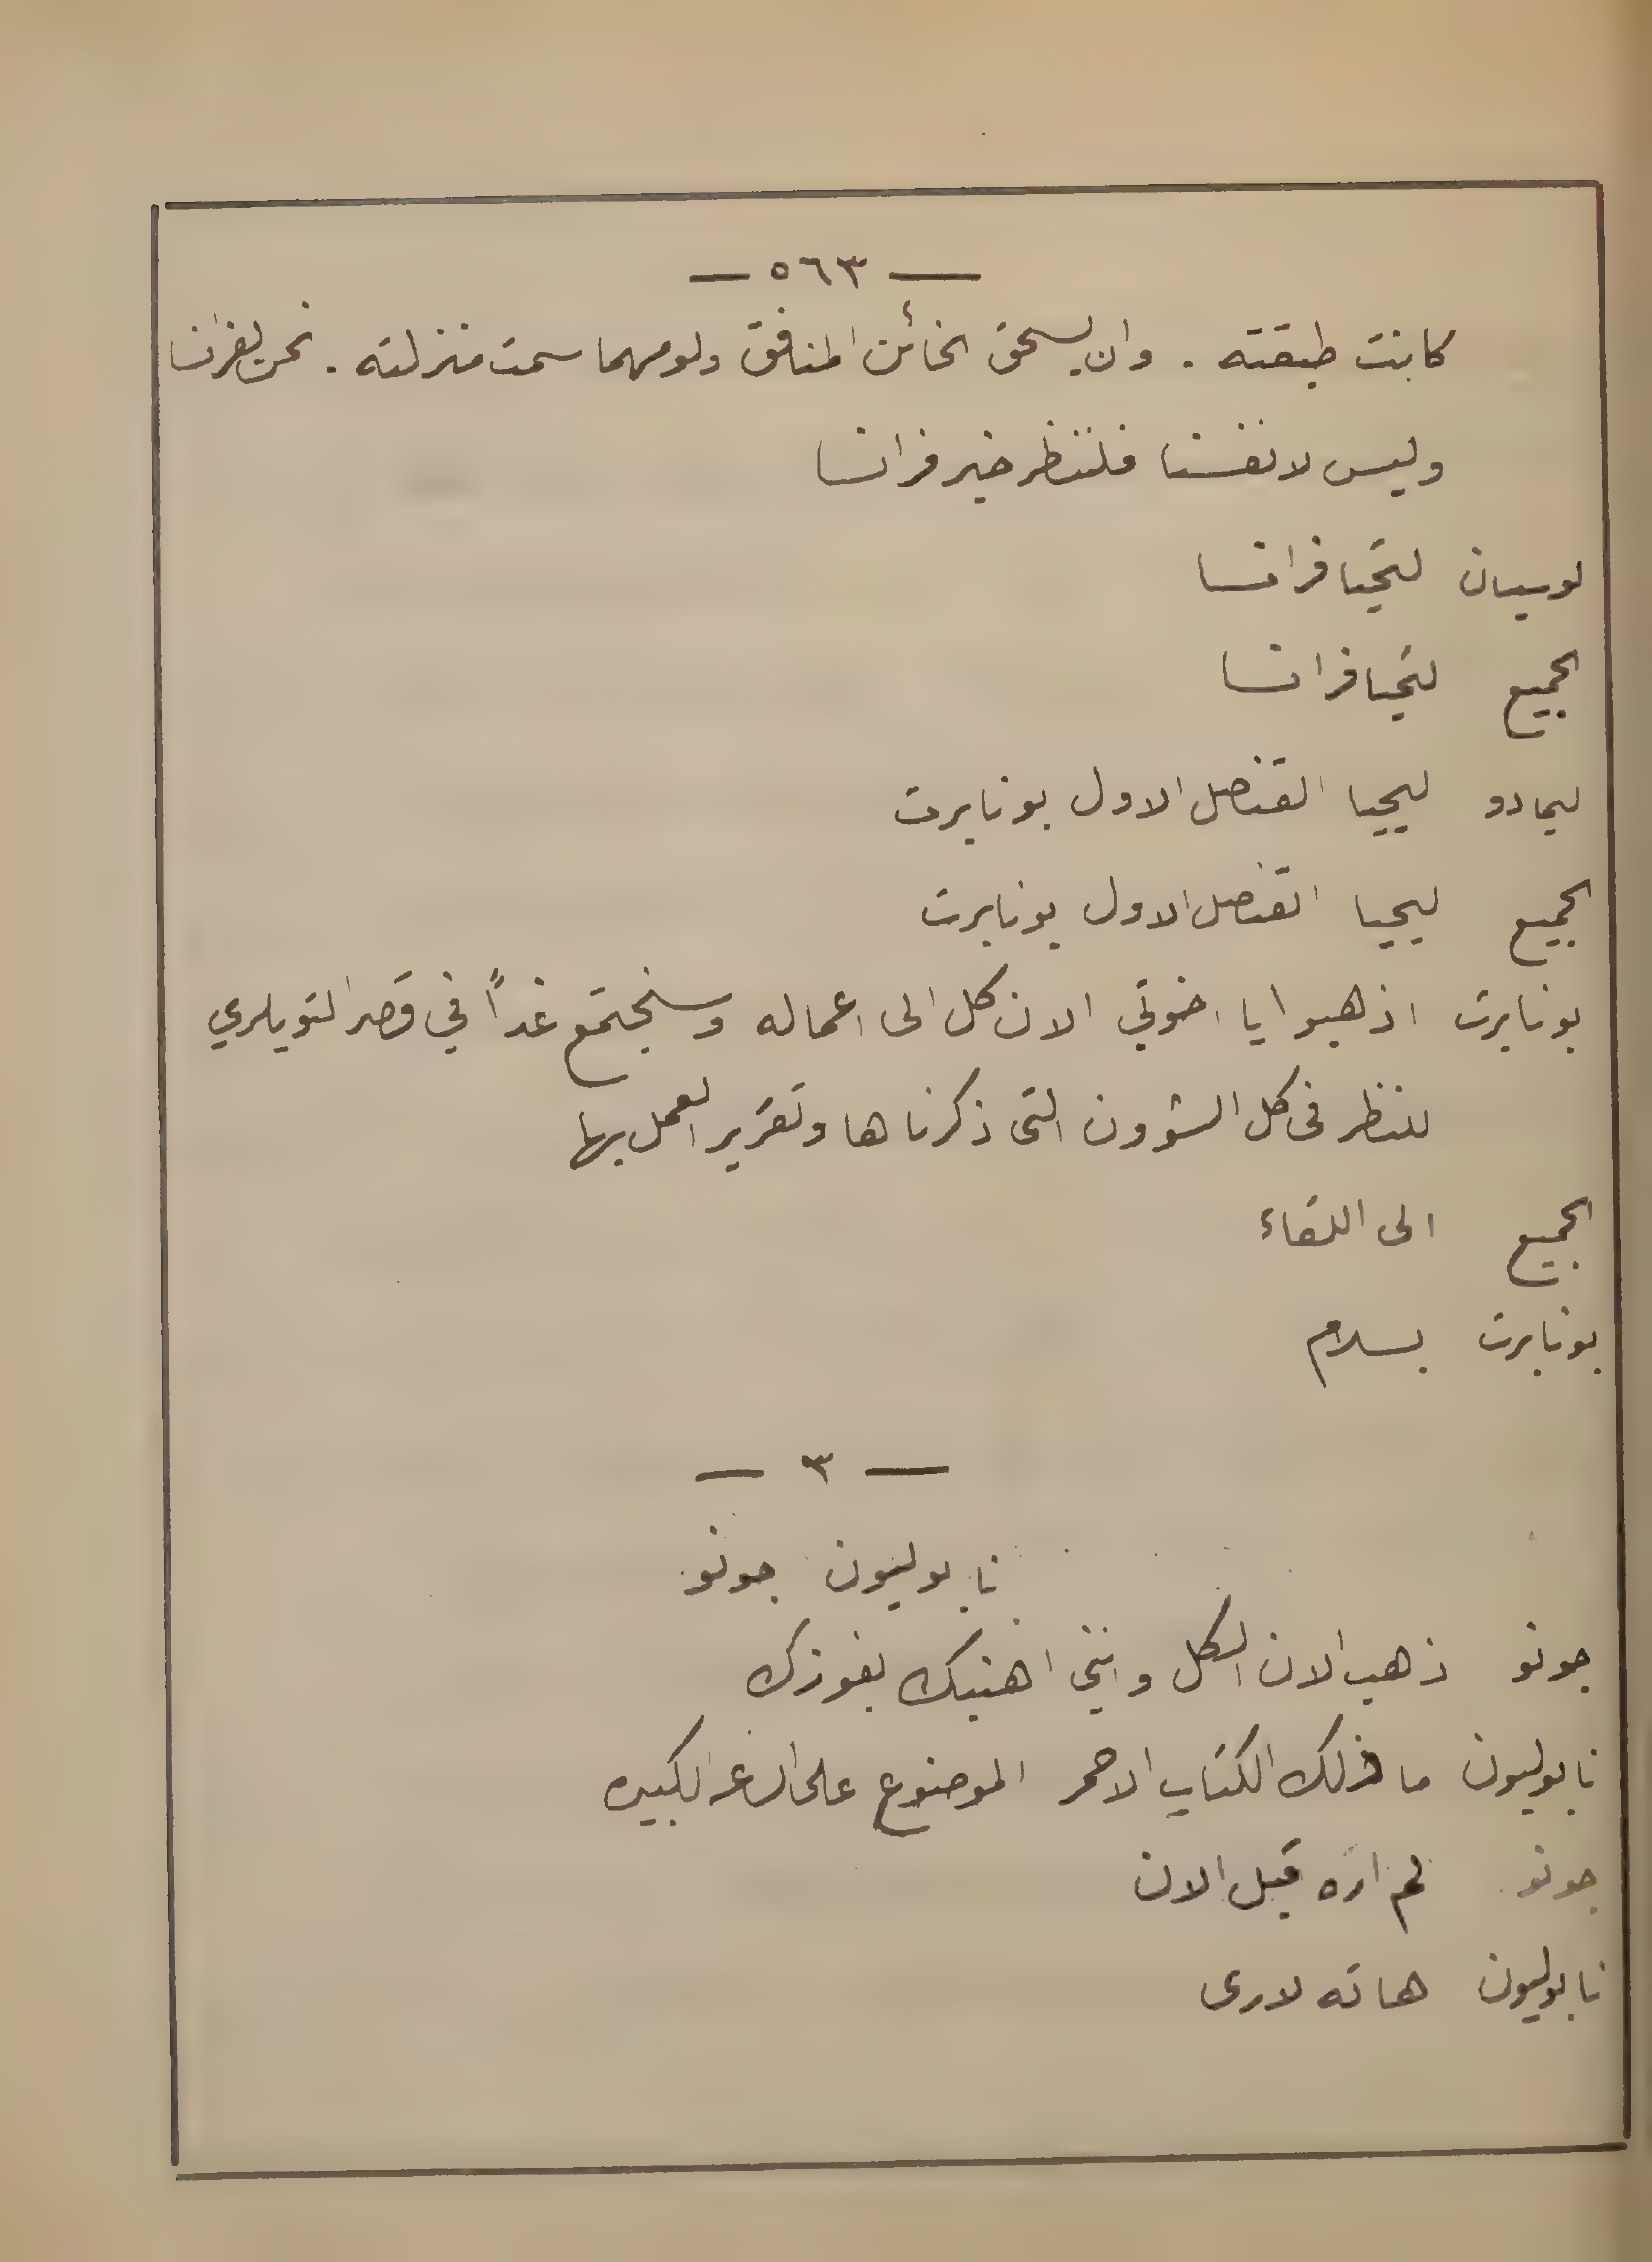 — ٥٦٣ —
كانت طبقته . وان يسحق الخائن المنافق ولو مهما سمت منزلته . نحن لفرانسا
وليس لانفسنا فلننظر خير فرانسا
لوسيان لتحيا فرانسا
الجميع لتحيا فرانسا
ليمادو ليحيا القنصل الاول بونابرت
الجميع ليحيا القنصل الاول بونابرت
بونابرت اذهبوا يا اخوتي الان كل الى اعماله وسنجتمع غداً في قصر التويلري
للنظر فى كل الشؤون التى ذكرناها وتقرير العمل بها
الجميع الى اللقاء
بونابرت بسلام
— ٣ —
نابوليون جونو
جونو ذهب الان الكل وانني اهنيك بفوزك
نابوليون ما ذلك الكتاب الاحمر الموضوع على الكبيره
جونو لم اره قبل الان
نابوليون هاته لارى